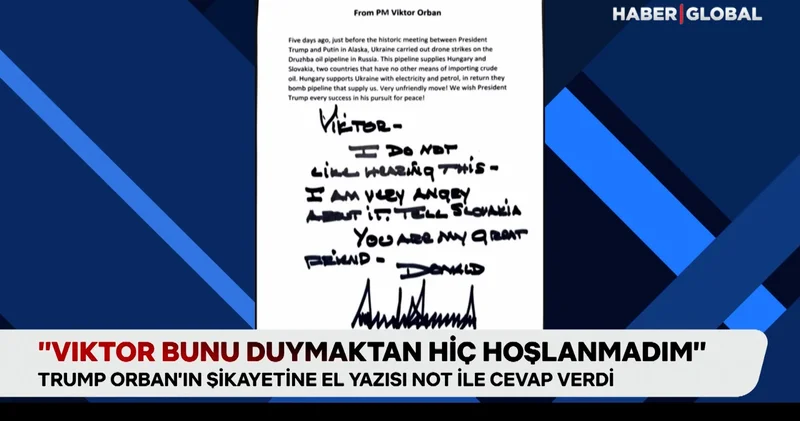 HABER GLOBAL
From PM Viktor Orban
Five days ago, just before the historic meeting between President
Trump and Putin in Alaska, Ukraine carried out drone strikes on the
Druzhba oil pipeline in Russia. This pipeline supplies Hungary and
Slovakia, two countries that have no other means of importing crude
oil. Hungary supports Ukraine with electricity and petrol, in return they
bomb pipeline that supply us. Very unfriendly move! We wish President
Trump every success in his pursuit for peace!
VIKTOR-
I DO NOT
LIKE HEARING THIS-
I AM VERY ANGRY
ABOUT IT. TELL SLOVAKIA
YOU ARE MY GREAT
FRIEND-
DONALD
"VIKTOR BUNU DUYMAKTAN HİÇ HOŞLANMADIM"
TRUMP ORBAN'IN ŞİKAYETİNE EL YAZISI NOT İLE CEVAP VERDİ